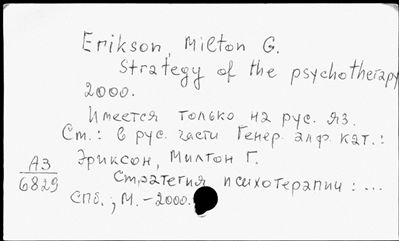 Erikson, Milton G.
Strategy of the psychotherapy
2000.
Имеется только на рус. яз.
См.: в рус. части Генер. алф. кат.:
Эриксон, Милтон Г.
АЗ
6829
Стратегия психотерапии : ...
СПб., М. - 2000.